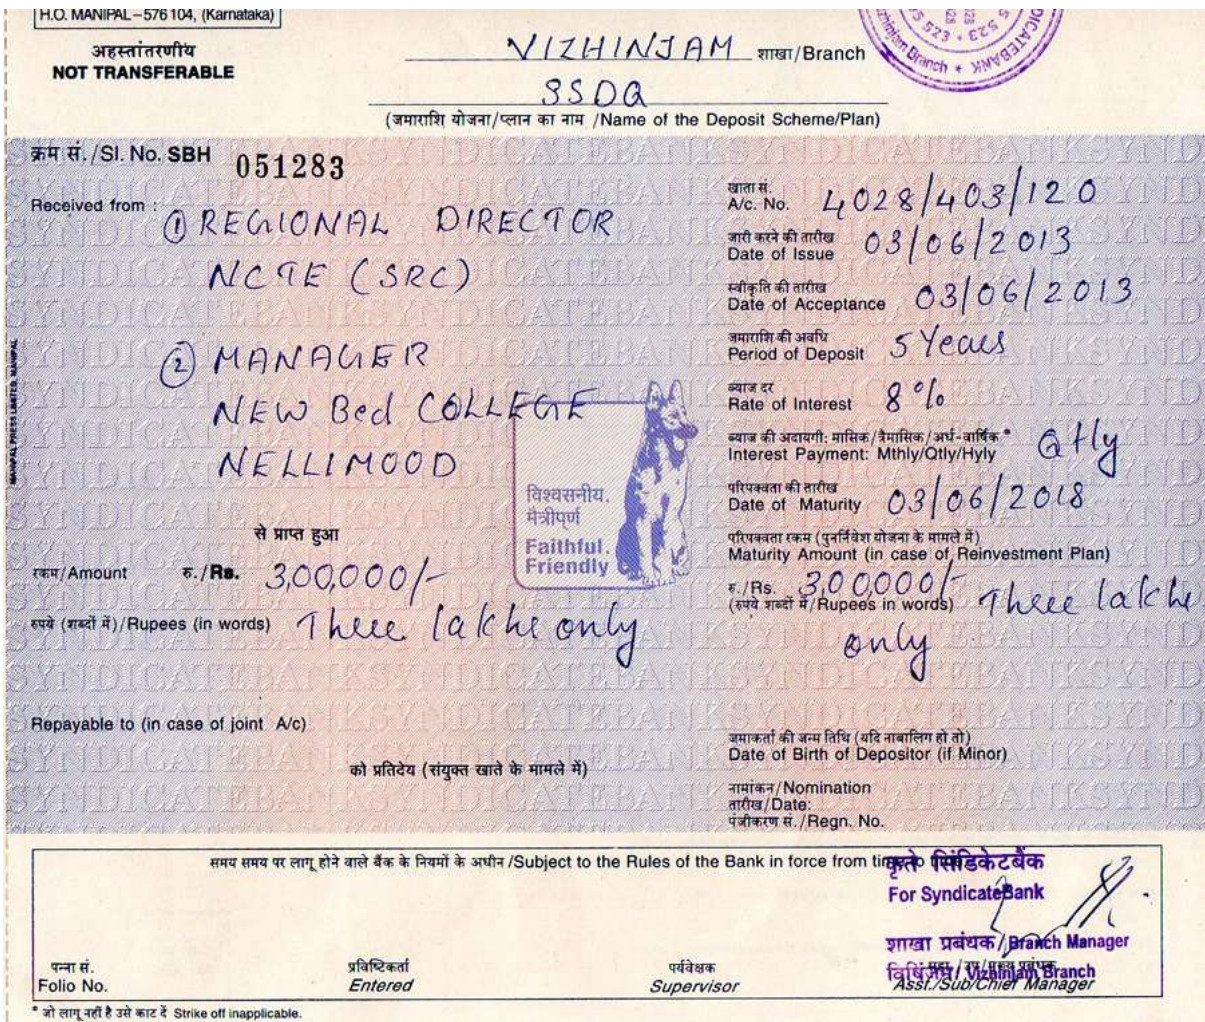 H.O. MANIPAL – 576 104, (Karnataka)
अहस्तांतरणीय
NOT TRANSFERABLE
VIZHINJAM शाखा/Branch
SSDQ
(जमाराशि योजना/प्लान का नाम /Name of the Deposit Scheme/Plan)
क्रम सं./Sl. No. SBH 051283
Received from :
① REGIONAL DIRECTOR
NCTE (SRC)
② MANAGER
NEW Bed COLLEGE
NELLIMOOD
से प्राप्त हुआ
रकम/Amount रु./Rs. 3,00,000/-
रुपये (शब्दों में)/Rupees (in words) Three lakhs only
Repayable to (in case of joint A/c)
को प्रतिदेय (संयुक्त खाते के मामले में)
विश्वसनीय.
मैत्रीपूर्ण
Faithful.
Friendly
MANIPAL PRESS LIMITED, MANIPAL
खाता सं.
A/c. No. 4028/403/120
जारी करने की तारीख
Date of Issue 03/06/2013
स्वीकृति की तारीख
Date of Acceptance 03/06/2013
जमाराशि की अवधि
Period of Deposit 5 Years
ब्याज दर
Rate of Interest 8%
ब्याज की अदायगी: मासिक/त्रैमासिक/अर्ध-वार्षिक *
Interest Payment: Mthly/Qtly/Hyly Qtly
परिपक्वता की तारीख
Date of Maturity 03/06/2018
परिपक्वता रकम (पुनर्निवेश योजना के मामले में)
Maturity Amount (in case of Reinvestment Plan)
रु./Rs. 3,00,000/-
(रुपये शब्दों में/Rupees in words) Three lakhs
only
जमाकर्ता की जन्म तिथि (यदि नाबालिग हो तो)
Date of Birth of Depositor (if Minor)
नामांकन/Nomination
तारीख/Date:
पंजीकरण सं./Regn. No.
समय समय पर लागू होने वाले बैंक के नियमों के अधीन /Subject to the Rules of the Bank in force from time to
कृते सिंडिकेटबैंक
For SyndicateBank
शाखा प्रबंधक/Branch Manager
विषिंजम/Vizhinjam Branch
Asst./Sub/Chief Manager
पन्ना सं.
Folio No.
प्रविष्टिकर्ता
Entered
पर्यवेक्षक
Supervisor
* जो लागू नहीं है उसे काट दें Strike off inapplicable.